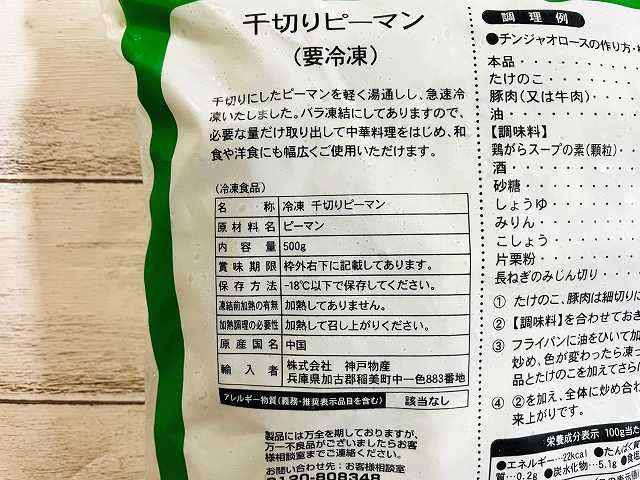 千切りピーマン
(要冷凍)
千切りにしたピーマンを軽く湯通しし、急速冷
凍いたしました。バラ凍結にしてありますので、
必要な量だけ取り出して中華料理をはじめ、和
食や洋食にも幅広くご使用いただけます。
(冷凍食品)
名称 冷凍 千切りピーマン
原材料名 ピーマン
内容量 500g
賞味期限 枠外右下に記載してあります。
保存方法 -18℃以下で保存してください。
凍結前加熱の有無 加熱してありません。
加熱調理の必要性 加熱して召し上がりください。
原産国名 中国
輸入者 株式会社 神戸物産
兵庫県加古郡稲美町中一色883番地
アレルギー物質(義務・推奨表示品目を含む) 該当なし
製品には万全を期しておりますが、
万一不良品がございましたらお客
様相談室までご連絡ください。
お問い合わせ先:お客様相談室
0120-808348
調理例
●チンジャオロースの作り方・
本品・・・・・・・・
たけのこ・・・・・・
豚肉(又は牛肉)・・・・
油・・・・・・・・・
【調味料】
鶏がらスープの素(顆粒)・・
酒・・・・・・・・・
砂糖・・・・・・・・
しょうゆ・・・・・・
みりん・・・・・・・
こしょう・・・・・・
片栗粉・・・・・・・
長ねぎのみじん切り・・
① たけのこ、豚肉は細切りに
② 【調味料】を合わせておき
③ フライパンに油をひいて加
炒め、色が変わったら凍っ
品とたけのこを加えてさら
④ ②を加え、全体に炒め合わ
来上がりです。
栄養成分表示 100g当た
●エネルギー…22kcal ●たんぱく
質…0.2g ●炭水化物…5.1g ●食塩